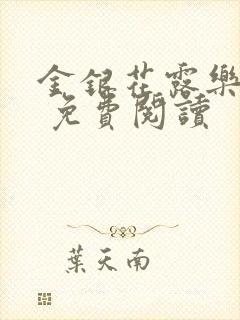 金銀花露樂
免費閱讀
葉天南